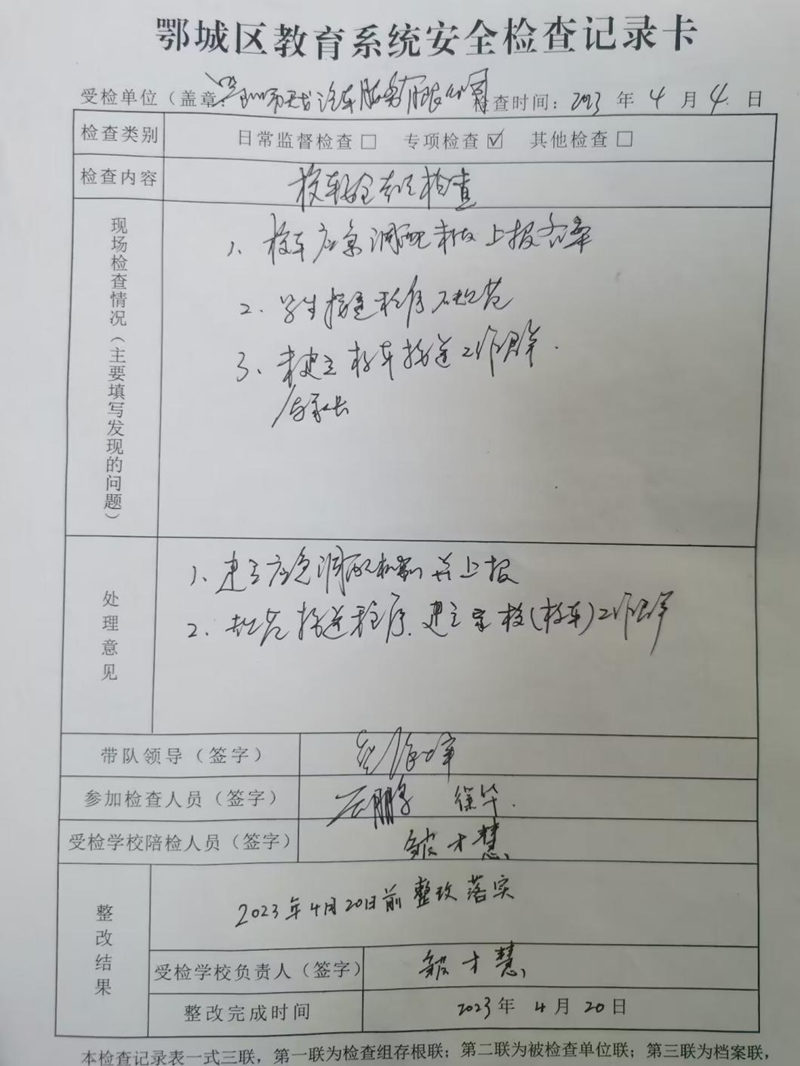 鄂城区教育系统安全检查记录卡
受检单位（盖章 汽车服务有限公司 检查时间：2023 年 4 月 4 日
检查类别 日常监督检查□ 专项检查☑ 其他检查□
检查内容 校车安全专项检查
现场检查情况（主要填写发现的问题）
1、校车应急调配未做上报备案
2、学生接送程序不规范
3、未建立校车接送工作群.
与家长
处理意见
1、建立应急调配机制并上报
2、规范接送程序，建立家校（校车）工作群
带队领导（签字）
参加检查人员（签字） 徐华
受检学校陪检人员（签字） 才慧
整改结果
2023年4月20日前整改落实
受检学校负责人（签字） 才慧
整改完成时间 2023 年 4 月 20 日
本检查记录表一式三联，第一联为检查组存根联；第二联为被检查单位联；第三联为档案联，